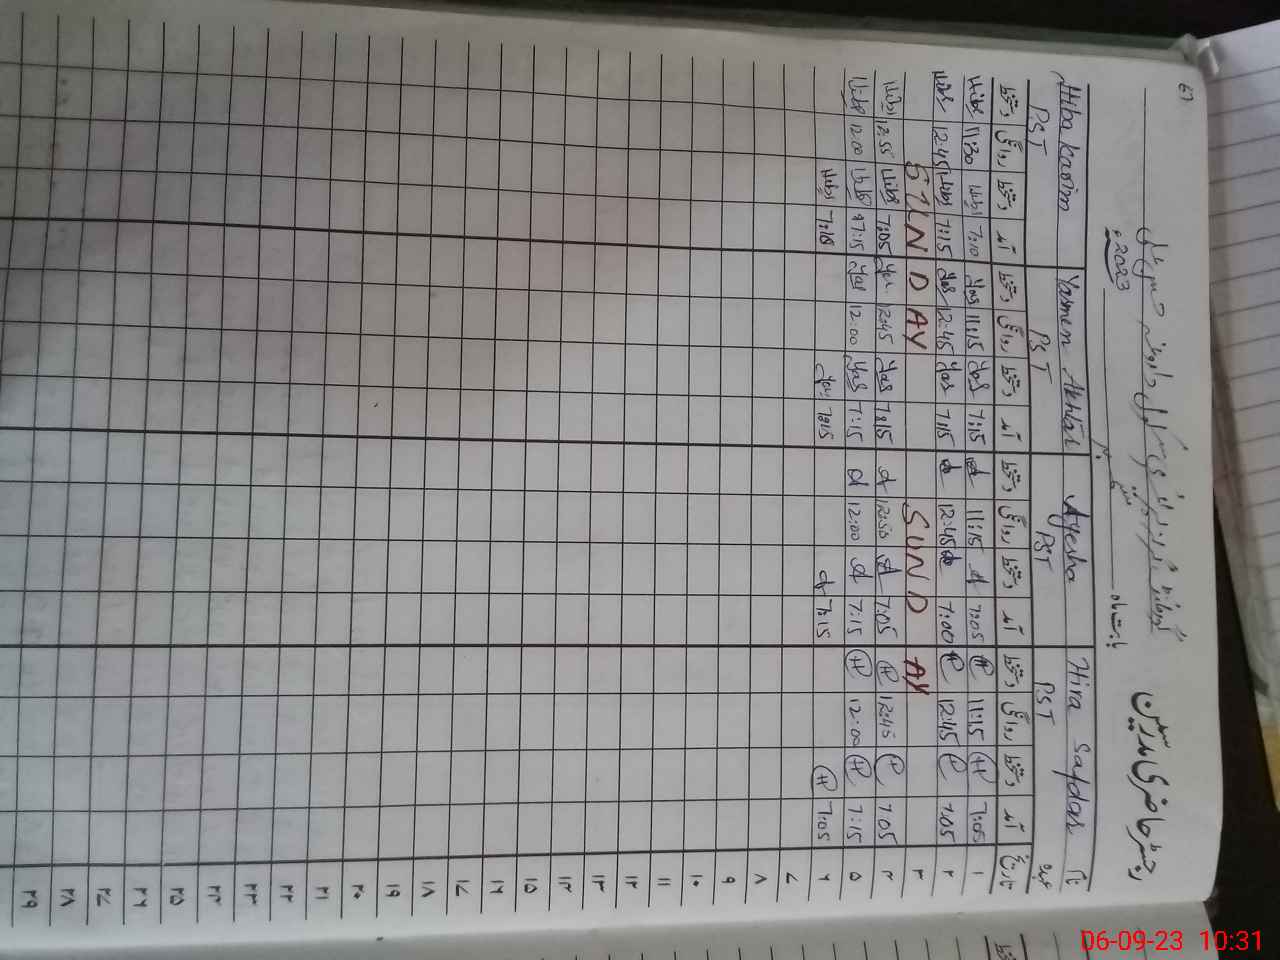 67
رجسٹر حاضری مدرسین
بابت ماہ ستمبر 2023ء
نام Hira Safdar Ayesha Yasmen Akhtar Hiba Karim
عہدہ PST PST PST PST
تاریخ آمد دستخط روانگی دستخط آمد دستخط روانگی دستخط آمد دستخط روانگی دستخط آمد دستخط روانگی دستخط
۱ 7:05 H 11:15 H 7:05 A 11:15 A 7:15 Yas 11:15 Yas 7:10 Hiba 11:30 Hiba
۲ 7:05 H 12:45 H 7:00 A 12:45 A 7:15 Yas 12:45 Yas 7:15 Hiba 12:45 Hiba
۳ SUNDAY SUNDAY
۴ 7:05 H 12:45 H 7:05 A 12:50 A 7:15 Yas 12:45 Yas 7:05 Hiba 12:55 Hiba
۵ 7:15 H 12:00 H 7:15 A 12:00 A 7:15 Yas 12:00 Yas 7:15 Hiba 12:00 Hiba
۶ 7:05 H 7:15 A 7:15 Yas 7:18 Hiba
۷
۸
۹
۱۰
۱۱
۱۲
۱۳
۱۴
۱۵
۱۶
۱۷
۱۸
۱۹
۲۰
۲۱
۲۲
۲۳
۲۴
۲۵
۲۶
۲۷
۲۸
۲۹
06-09-23 10:31